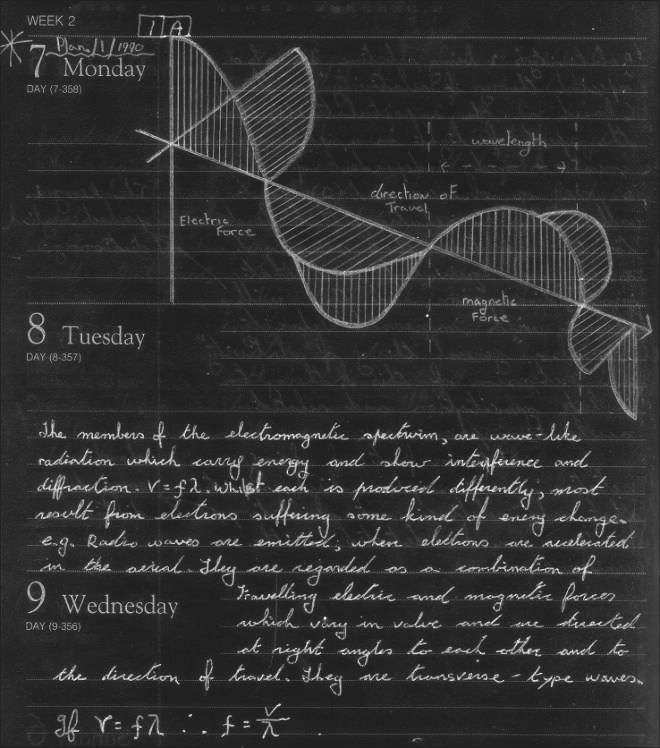 WEEK 2
1 A
7 Monday
DAY (7-358)
wavelength
direction of
Travel
Electric
Force
magnetic
Force
8 Tuesday
DAY (8-357)
The members of the electromagnetic spectrum, are wave-like
radiation which carry energy and show interference and
diffraction. V = fλ. Whilst each is produced differently, most
result from electrons suffering some kind of energy change.
e.g. Radio waves are emitted; when electrons are accelerated
in the aerial. They are regarded as a combination of
9 Wednesday
DAY (9-356)
Travelling electric and magnetic forces
which vary in value and are directed
at right angles to each other and to
the direction of travel. They are transverse - type waves.
If V = fλ ∴ f = V/λ .